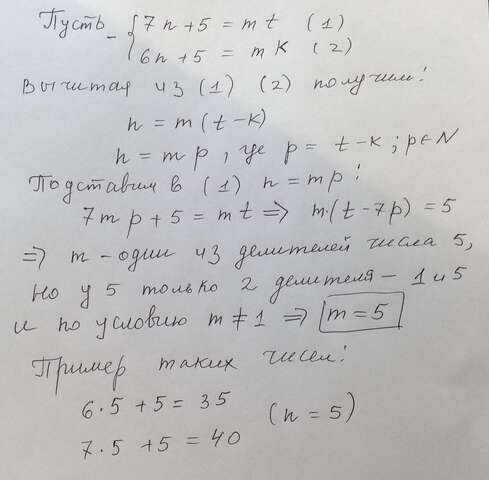 Пусть { 7n + 5 = mt (1)
6n + 5 = mk (2)
Вычитая из (1) (2) получим:
n = m (t - k)
n = mp, где p = t - k; p ∈ N
Подставим в (1) n = mp:
7mp + 5 = mt => m·(t - 7p) = 5
=> m - один из делителей числа 5,
но у 5 только 2 делителя - 1 и 5
и по условию m ≠ 1 => m = 5
Пример таких чисел:
6·5 + 5 = 35
(n = 5)
7·5 + 5 = 40